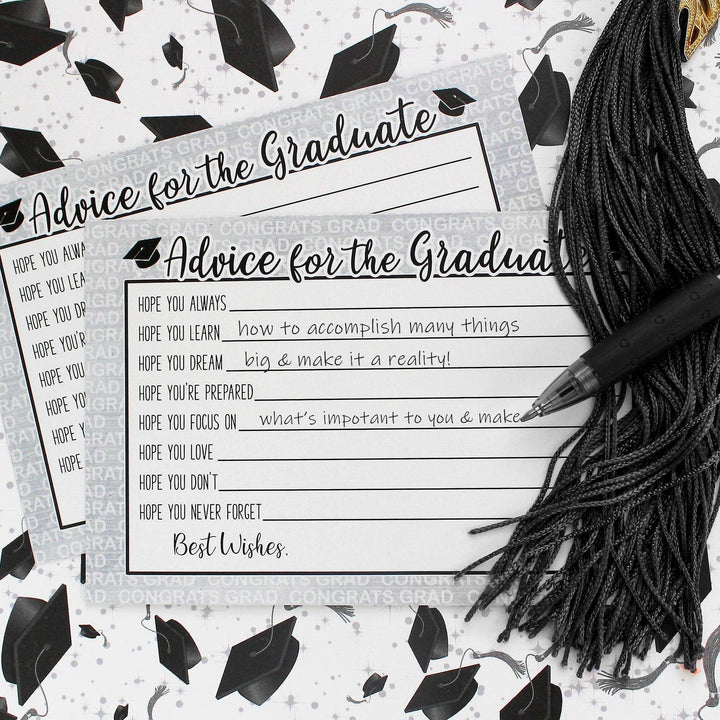 Advice for the Graduate
HOPE YOU
HOPE YOU
HOPE YOU
HOPE YOU'R
HOPE YOU
HOPE YOU
HOPE
HOPE
CONGRATS GRAD CONGRATS GRAD CONGRATS
Advice for the Graduate
HOPE YOU ALWAYS
HOPE YOU LEARN how to accomplish many things
HOPE YOU DREAM big & make it a reality!
HOPE YOU'RE PREPARED
HOPE YOU FOCUS ON what's impotant to you & make
HOPE YOU LOVE
HOPE YOU DON'T
HOPE YOU NEVER FORGET
Best Wishes,
CONGRATS GRAD CONGRATS GRAD CONGRATS GRAD